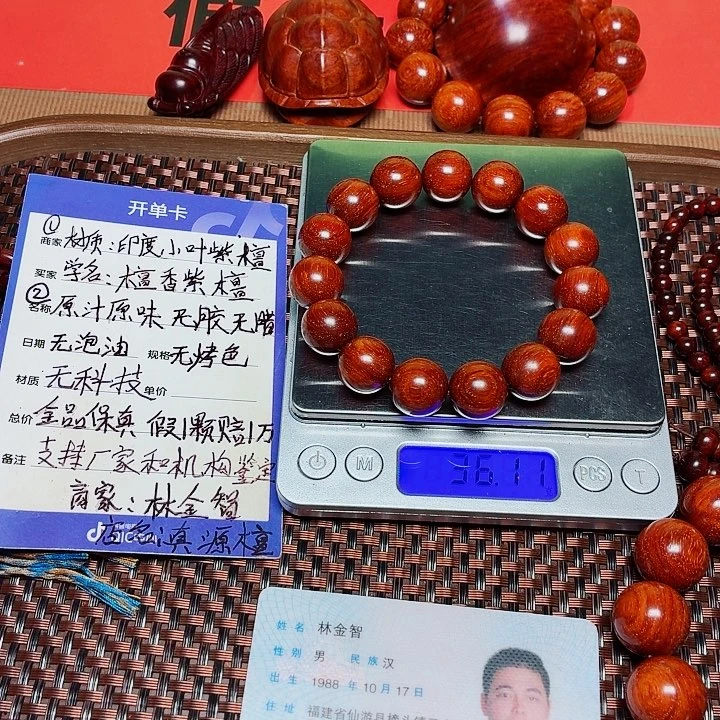 假
开单卡
①
商家 材质:印度小叶紫檀
买家 学名:檀香紫檀
②
名称 原汁原味 无胶无腊
日期 无泡油 规格 无烤色
材质 无科技 单价
总价 全品保真 假1颗赔1万
备注 支持厂家和机构鉴定
商家:林金智
店名:滇源檀
M
36.11
PCS
T
姓名 林金智
性别 男 民族 汉
出生 1988 年 10 月 17 日
住址 福建省仙游县榜头镇